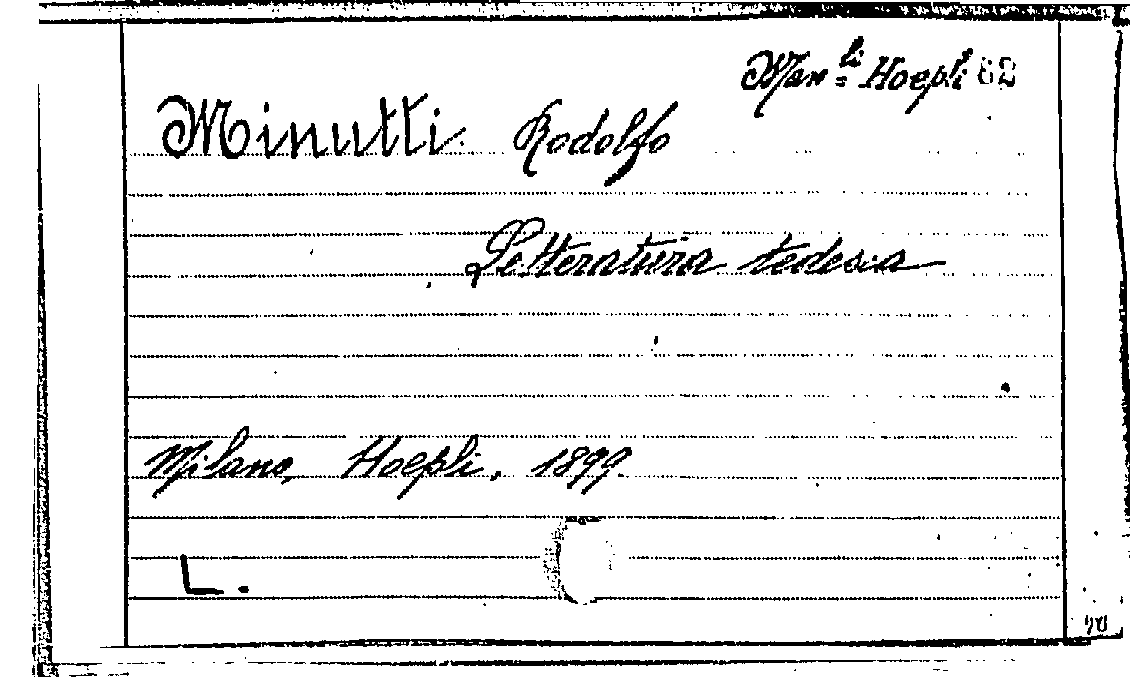 Man.li Hoepli 62
Minutti Rodolfo
Letteratura tedesca
Milano, Hoepli, 1899.
L.